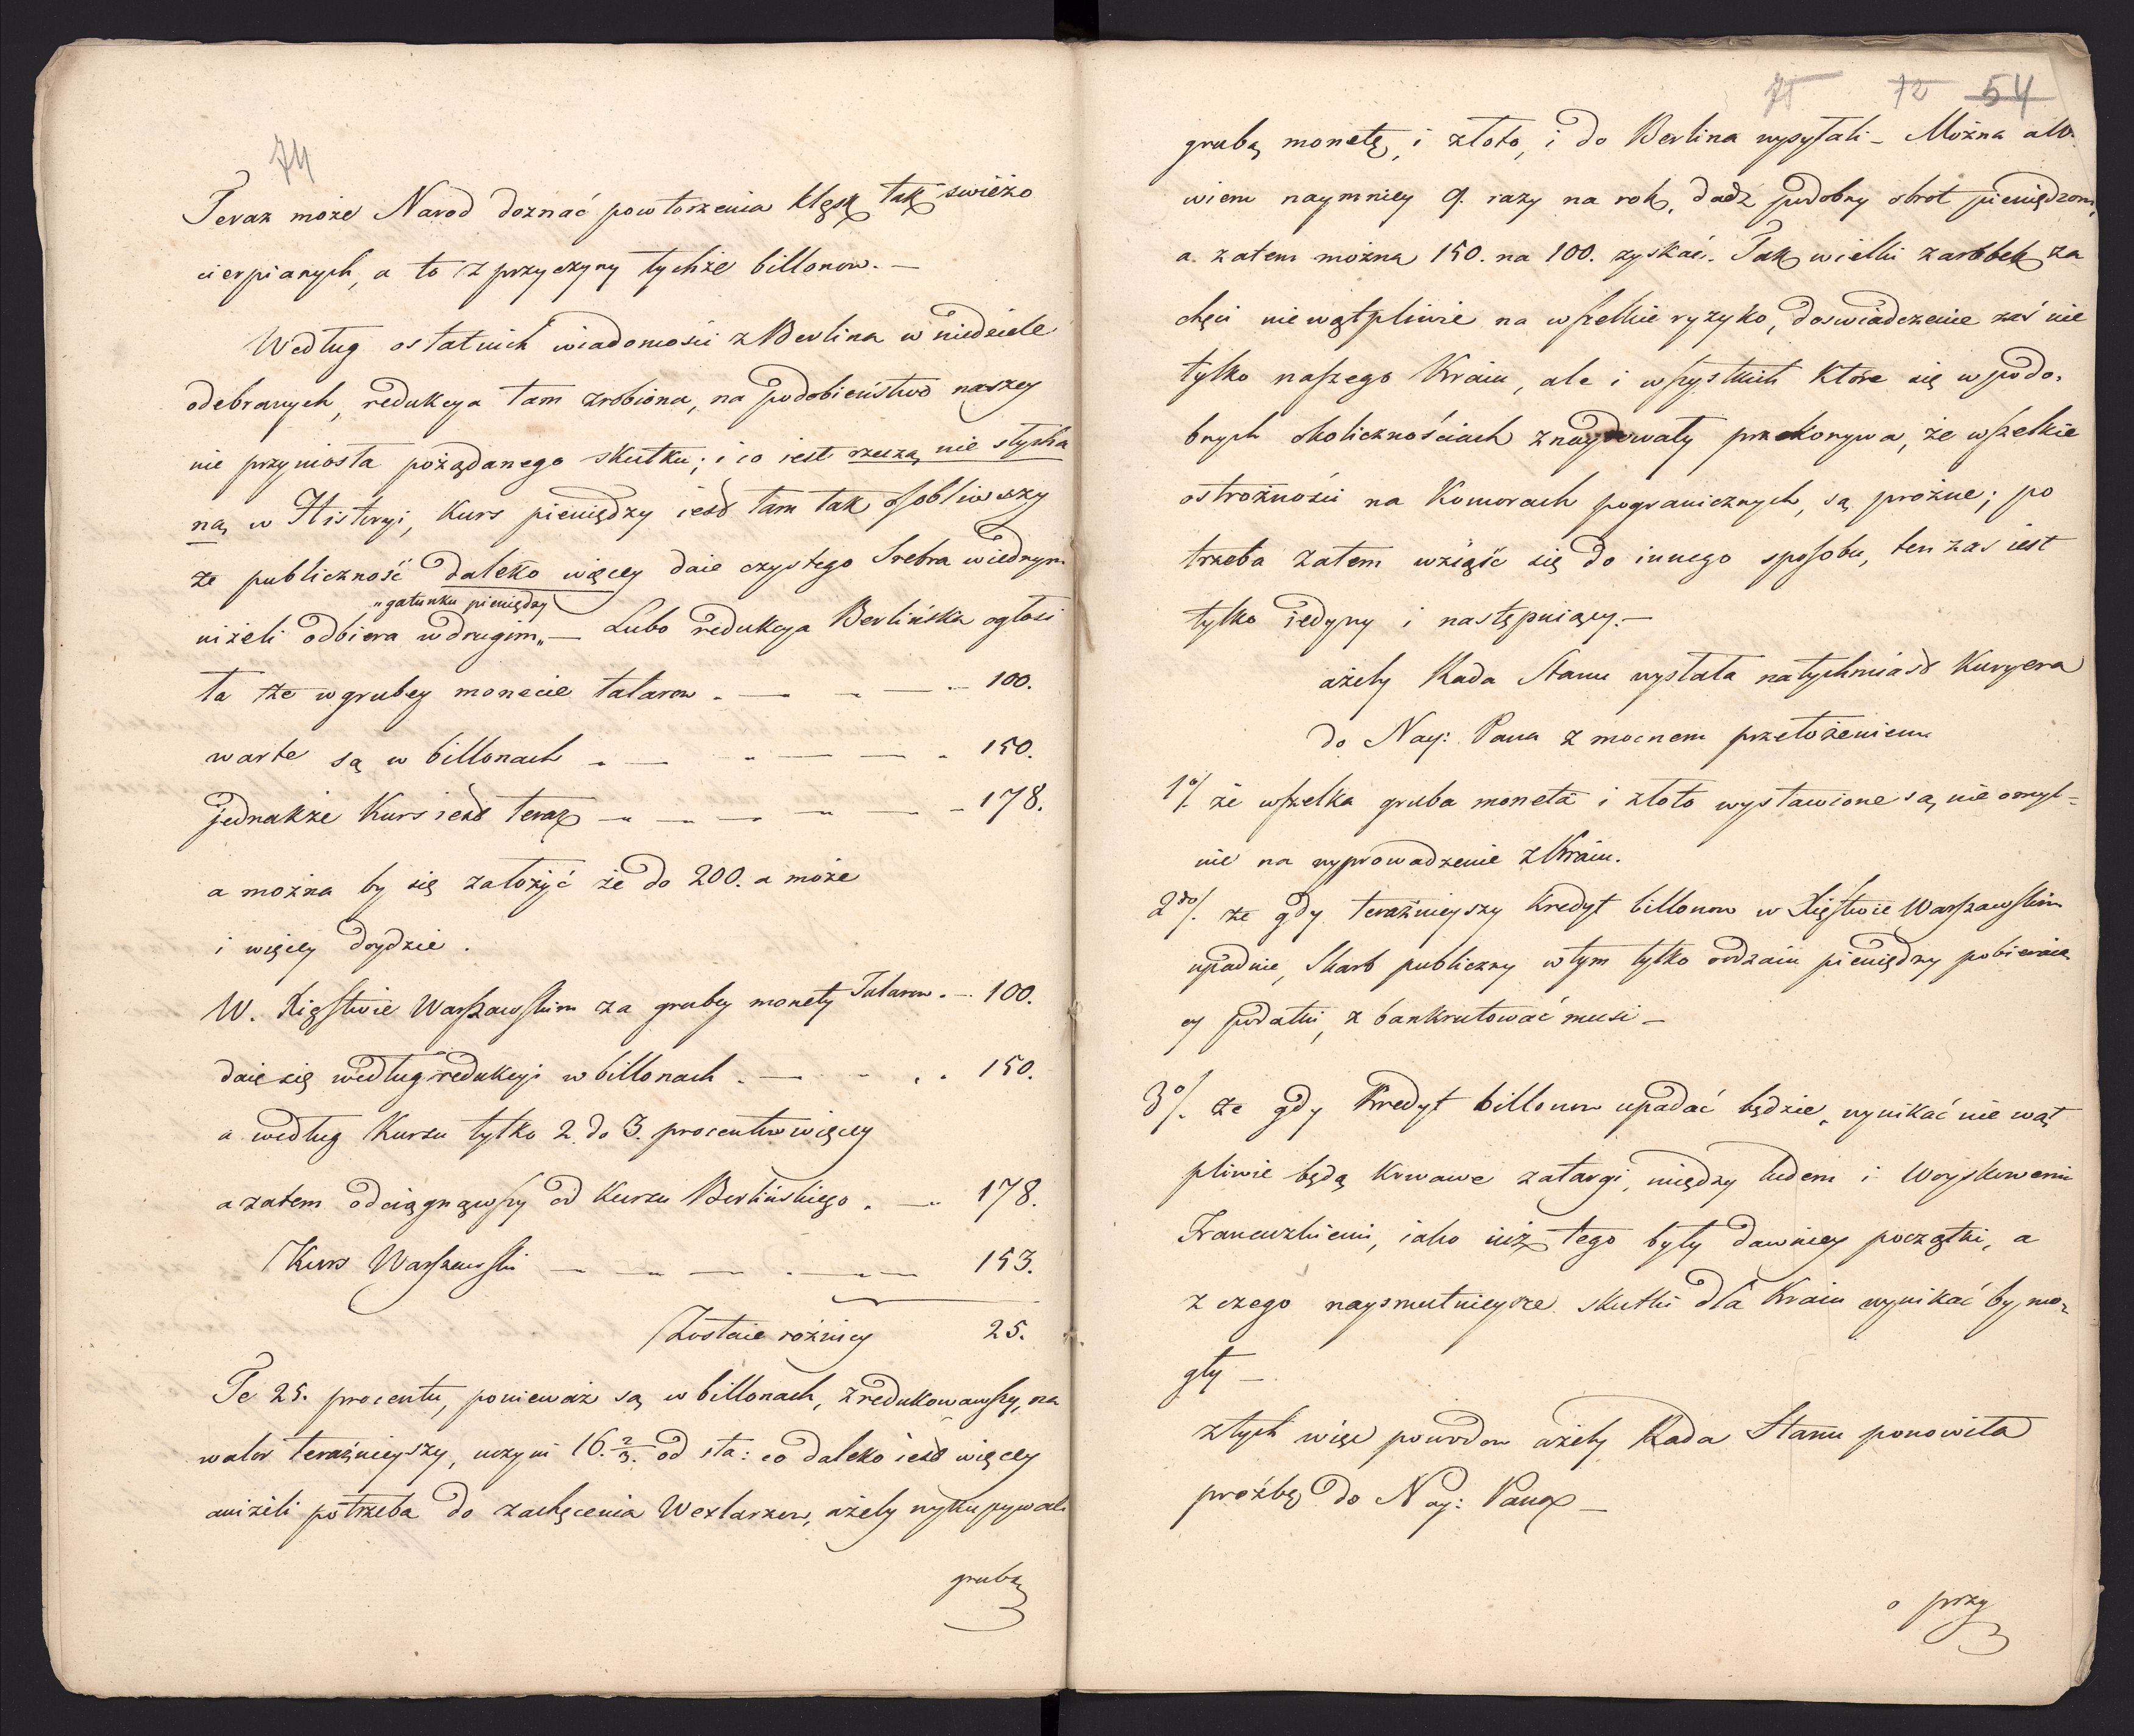 74
Teraz może Narod doznać powtorzenia klęsk tak swieżo
cierpianych, a to z przyczyny tychże billonow. —
Według ostatnich wiadomości z Berlina w niedziele
odebranych, redukcya tam zrobiona, na podobieństwo naszey
nie przyniosła pożądanego skutku; i co iest rzeczą nie słycha
ną w Historyi, kurs pieniędzy iest tam tak osobliwszy
że publiczność daleko więcey daie czystego Srebra w iednym
„gatunku pieniędzy
niżeli odbiera w drugim„ — Lubo redukcya Berlińska ogłosi
ła że w grubey monecie talarow . — . — 100.
warte są w billonach . — . — — . 150.
jednakże kurs iest teraz — — — — — 178.
a można by się założyć że do 200. a może
i więcey doydzie .
W. Xięstwie Warszawskim za grubey monety Talarow. — 100.
daie się według redukcyi w billonach . — . . 150.
a według kursu tylko 2. do 3. procentow więcey
a zatem odciągnąwszy od kursu Berlińskiego . — 178.
Kurs Warszawski — — — . — — 153.
Zostaie rożnicy 25.
Te 25. procentu, ponieważ są w billonach, zredukowawszy, na
walor teraźnieyszy, uczyni 16. 2/3. od sta: co daleko iest więcey
aniżeli potrzeba do zachęcenia Wexlarzow, ażeby wykupywali
grubą
75 72 54
grubą monetę, i złoto, i do Berlina wysyłali – Można albo
wiem naymniey 9. razy na rok, dadź podobny obrot pieniędzom,
a zatem można 150. na 100. zyskać. Tak wielki zarobek za
chęci niewątpliwie na wszelkie ryzyko, doswiadczenie zaś nie
tylko naszego Kraiu, ale i wszystkich które się w podo,
bnych okolicznościach znaydowały przekonywa, że wszelkie
ostrożności na Komorach pogranicznych, są prożne; po
trzeba zatem wziąść się do innego sposobu, ten zas iest
tylko iedyny i następuiący. —
ażeby Rada Stanu wysłała natychmiast Kuryera
do Nay: Pana z mocnem przełożeniem
1o/. że wszelka gruba moneta i złoto wystawione są, nieomyl=
nie na wyprowadzenie z Kraiu.
2do/. że gdy teraźnieyszy kredyt billonow w Xięstwie Warszawskim
upadnie, Skarb publiczny w tym tylko rodzaiu pieniędzy pobieraią
cy podatki, zbankrutować musi —
3o/. że gdy kredyt billonow upadać będzie, wynikać nie wąt
pliwie będą krwawe zatargi, między ludem i Woyskowemi
Francuzkiemi, iako iuż tego były dawniey początki, a
z czego naysmutnieysze skutki dla Kraiu wynikać by mo,
gły —
z tych więc powodow ażeby Rada Stanu ponowiła
proźbę do Nay: Pana —
o przy